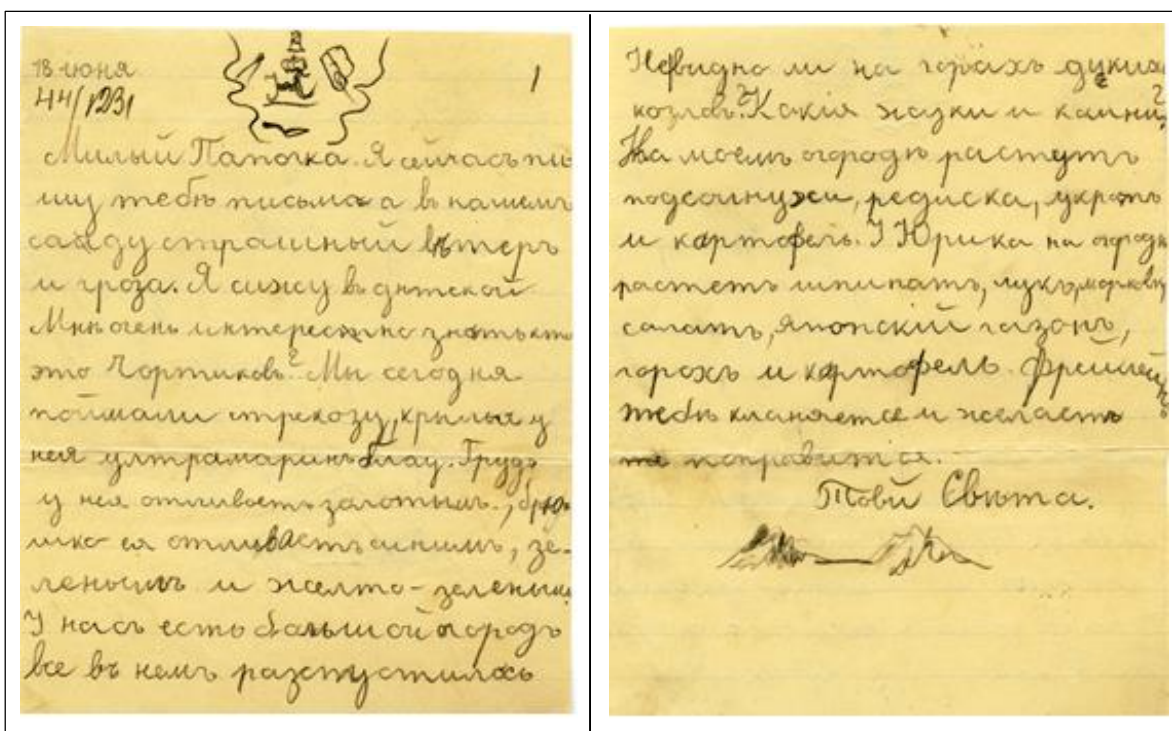 18 июня
44/1231
1
Милый Папочка. Я сейчасъ пи
шу тебѣ письмо а въ нашемъ
саду страшный вѣтеръ
и гроза. Я сижу въ дѣтской
Мнѣ очень интересно знать кто
это Чортиковъ? Мы сегодня
поймали стрекозу, крылья у
нея ултрамаринъ блау. Грудь
у нея отливаетъ залотымъ, брю
шко ея отливаетъ синимъ, зе-
ленымъ и желто-зеленым
У насъ есть большой огородъ
все въ немъ разспустилось
Невидно ли на горахъ диких
козлов? Какія жазки и камни?
На моемъ огородѣ растутъ
подсолнухи, редиска, укропъ
и картофель. У Юрика на огородѣ
растетъ шпинатъ, лукъ, морковь
салатъ, японскій газонъ,
горохъ и картофель. Фрейлейнъ
тебѣ кланяется и желаетъ
поправится.
Твой Свѣта.